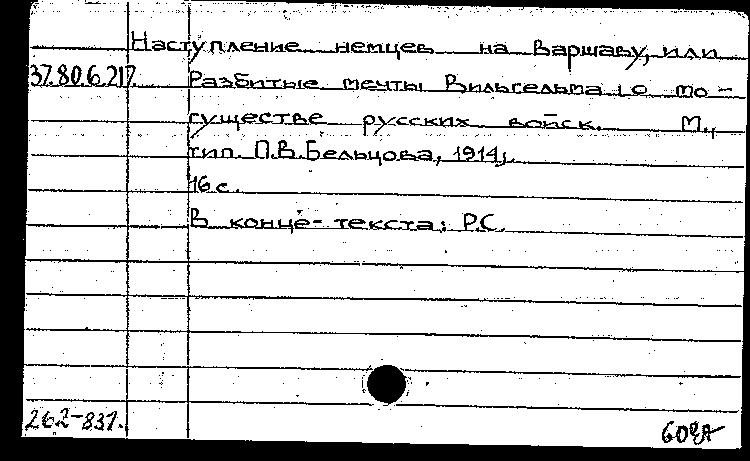 Наступление немцев на Варшаву, или
37.80.6.217. Разбитые мечты Вильгельма о мо-
гуществе русских войск. М.,
тип. П.В.Бельцова, 1914,
16 с.
В конце текста: Р.С.
262-831.